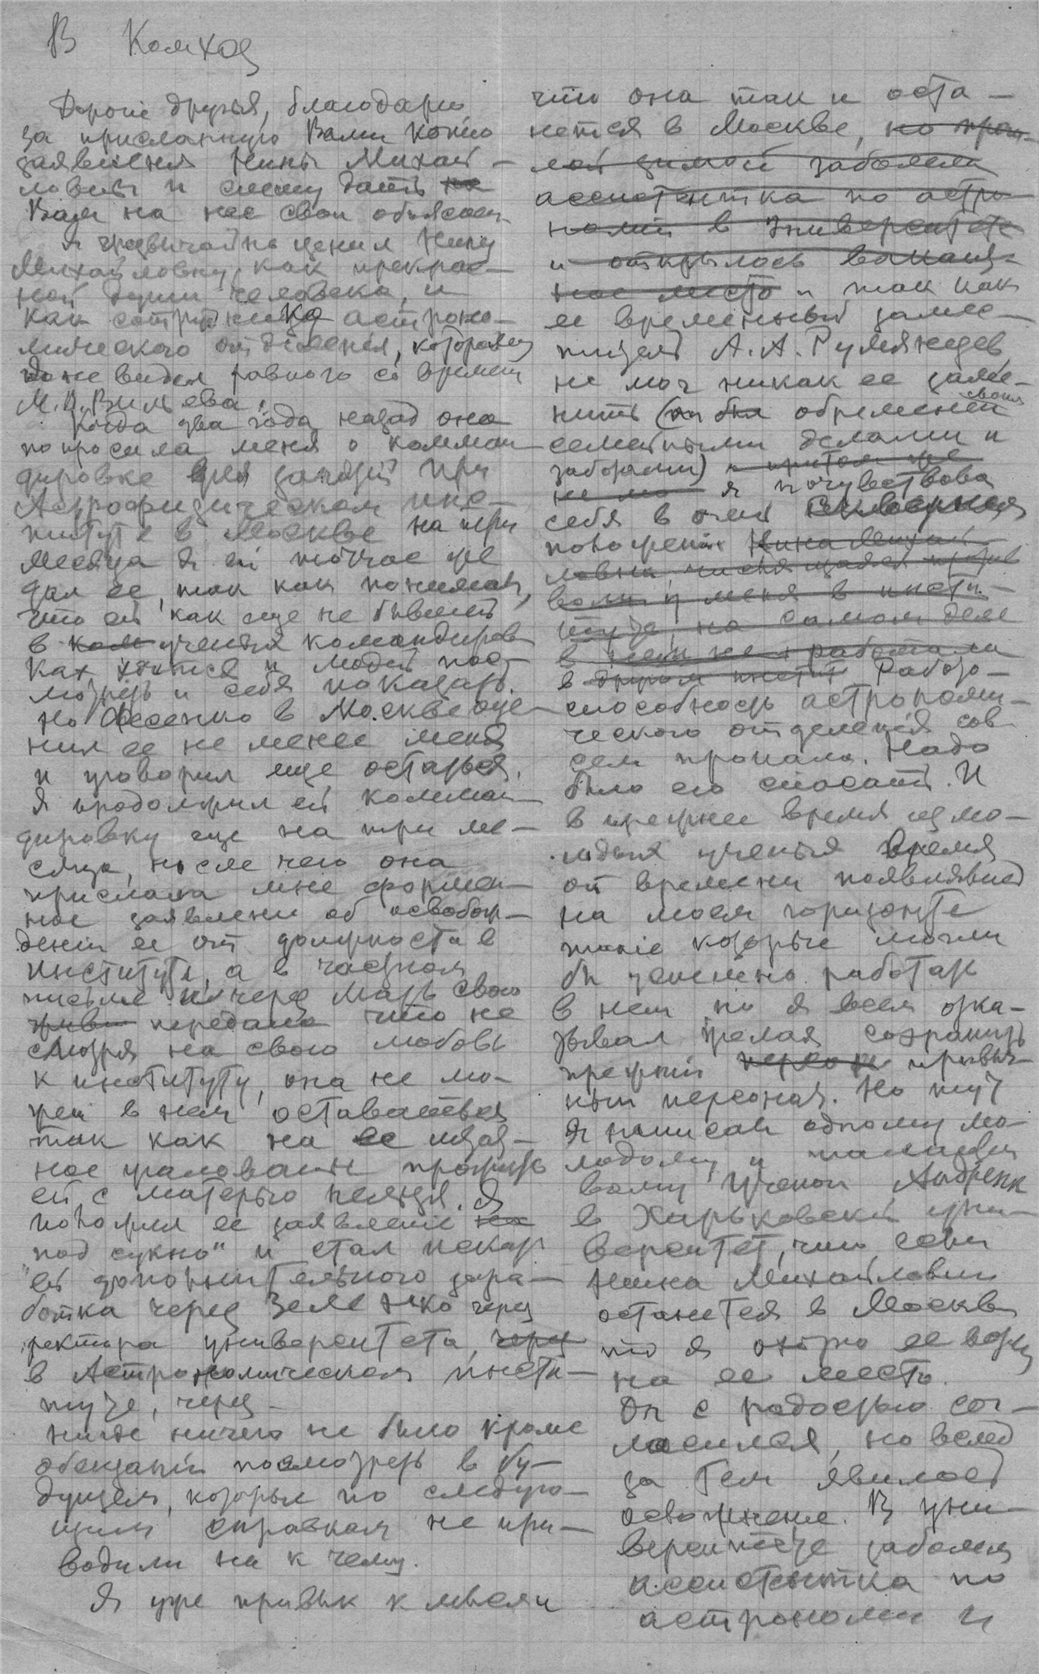 В Колхоз
Дорогие друзья, благодарю
за присланную Вами копию
заявления Нины Михай-
ловны и спешу дать на
Вам на нее свои объяснен
Я чрезвычайно ценил Нину
Михайловну, как прекрас-
ной души человека, и
как сотрудника астроно-
мического отделения, которому
не видел равного со времен
М.А. Вильева.
Когда два года назад она
попросила меня о комман-
дировке для занятий при
Астрофизическом инс-
титуте в Москве на три
месяца я ей тотчас же
дал ее, так как понимал,
что ей как еще не бывшей
в ком ученых командиров
ках, хочется и людей пос-
мотреть и себя показать.
Но Фесенко в Москве оце-
нил ее не менее меня
и уговорил еще остаться.
Я продолжил ей комман-
дировку еще на три ме-
сяца, после чего она
прислала мне формаль-
ное заявление об освобож-
дении ее от должности в
институте, а в частном
письме и через мать свою
передала что не
смотря на свою любовь
к институту, она не мо-
жет в нем оставаться
так как на ее
ное жалованье прожить
ей с матерью нельзя. Я
положил ее заявление на
под сукно" и стал искать
ей дополнительного зара-
ботка через
ректора университета, через
в Астрономическом инсти-
туте, через
нигде ничего не было кроме
обещаний посмотреть в бу-
дущем, которые по следую-
щим справкам не при-
водили ни к чему.
Я уже привык к мысли
что она так и оста-
нется в Москве, но прош-
лой зимой заболела
ассистентка по астро-
номии в Университете
и открылось
ное место и так как
ее временный замес-
титель А.А. Румянцев
не мог никак ее заме-
нить (он был обременен своими
семейными делами и
заботами) и притом же
не мо я почувствовал
себя в очень скверном
положении Нина Михай-
ловна,
вами у меня в инсти-
туте, на самом деле
в нем не работала
в другом инстит Работо-
способность астрономи-
ческого отделения сов-
сем пропала. Надо
было его спасать. И
в прежнее время из мо-
лодых ученых время
от времени появлялись
на моем горизонте
такие которые могли
бы успешно работать
в нем но я всем отка-
зывал желая сохранить
прежний персон привыч-
ный персонал. Но тут
я написал одному мо-
лодому и талантли
вому ученому Андренк
в Харьковский уни-
верситет, что если
Нина Михайловна
останется в Москве
то я охотно ее возьму
на ее место.
Он с радостью сог-
ласился, но вслед
за тем явилось
осложнение. В уни-
верситете заболела
ассистентка по
астрономии и